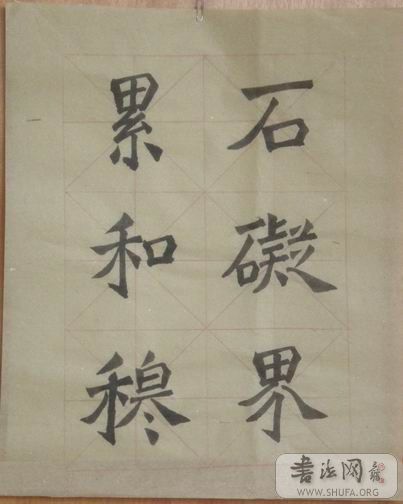 石礙界
累和穆
書法网
WWW.SHUFA.ORG